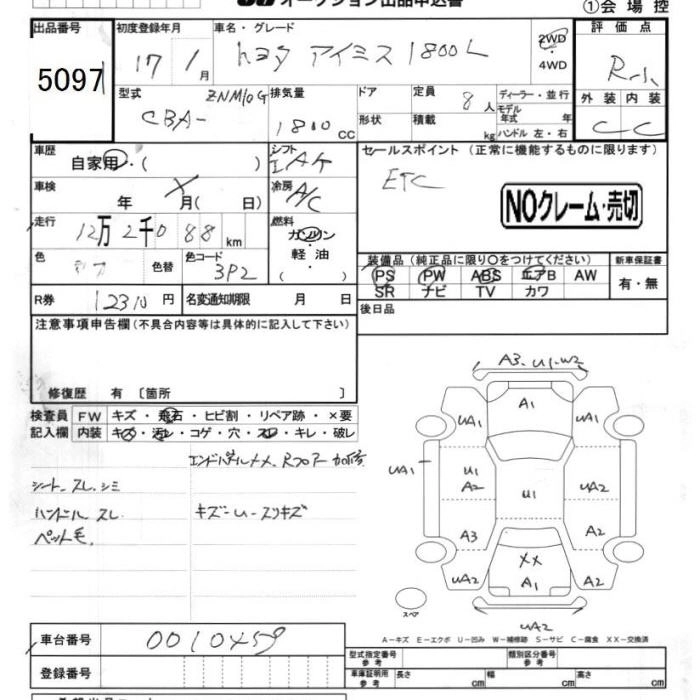 オークション出品申込書
①会場控
出品番号 初度登録年月 車名・グレード 評価点
5097 17 / 1月 トヨタ アイシス 1800L 2WD 4WD R-1
型式 ZNM10G 排気量 ドア 定員 8人 ディーラー・並行 外装 内装
CBA- 1800cc 形状 積載 kg モデル年式 年 ハンドル 左・右 C C
車歴 自家用・( ) シフト IAT セールスポイント (正常に機能するものに限ります)
ETC
車検 年 月( 日) 冷房 A/C
NOクレーム・売切
走行 12万2千088km 燃料 ガソリン 軽油 ( )
色 色替 色コード 3P2
装備品(純正品に限り〇をつけてください) 新車保証書
PS PW ABS エアB AW 有・無
SR ナビ TV カワ
R券 12310円 名変通知期限 月 日 後日品
注意事項申告欄(不具合内容等は具体的に記入して下さい)
修復歴 有〔箇所 〕
検査員 FW キズ・飛石・ヒビ割・リペア跡・×要
記入欄 内装 キズ・汚レ・コゲ・穴・スレ・キレ・破レ
シート スレ、シミ
ハンドル スレ
ペット毛、
キズ-U-スリキズ
A3、U1、W2
A1
UA1 UA1
UA1 U1 A2 U1 UA2
A3 A2
XX
UA2 A1 A2
スペア
UA2
A-キズ E-エクボ U-凹み W-補修跡 S-サビ C-腐食 XX-交換済
車台番号 0010459
型式指定番号 参考 類別区分番号 参考
登録番号 車庫証明用 参考 長さ cm 幅 cm 高さ cm